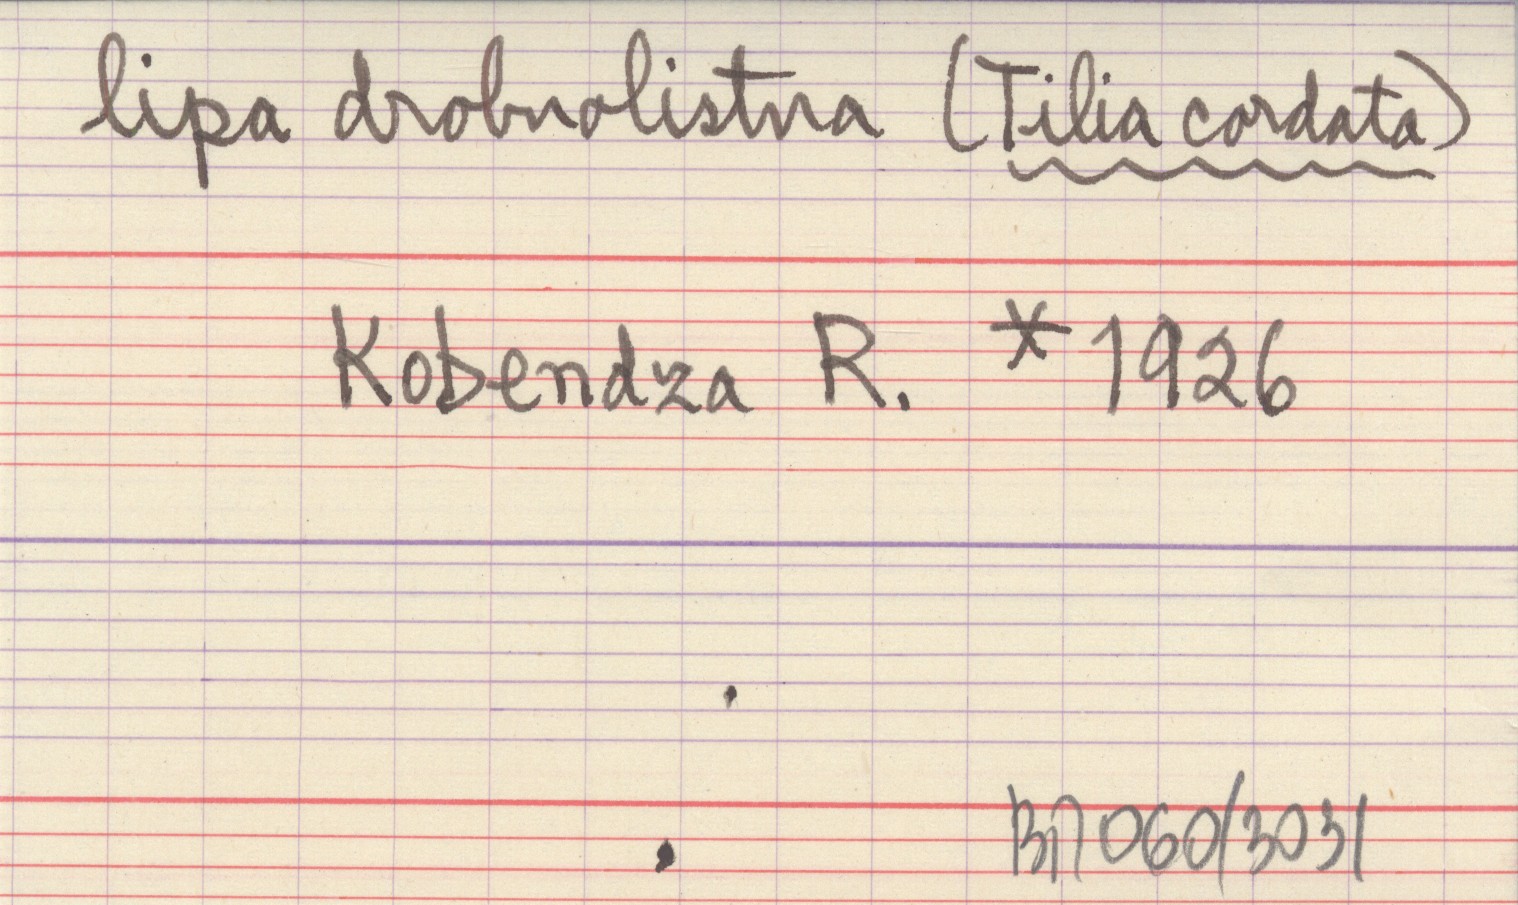 lipa drobnolistna (Tilia cordata)
Kobendza R. *1926
060/3031